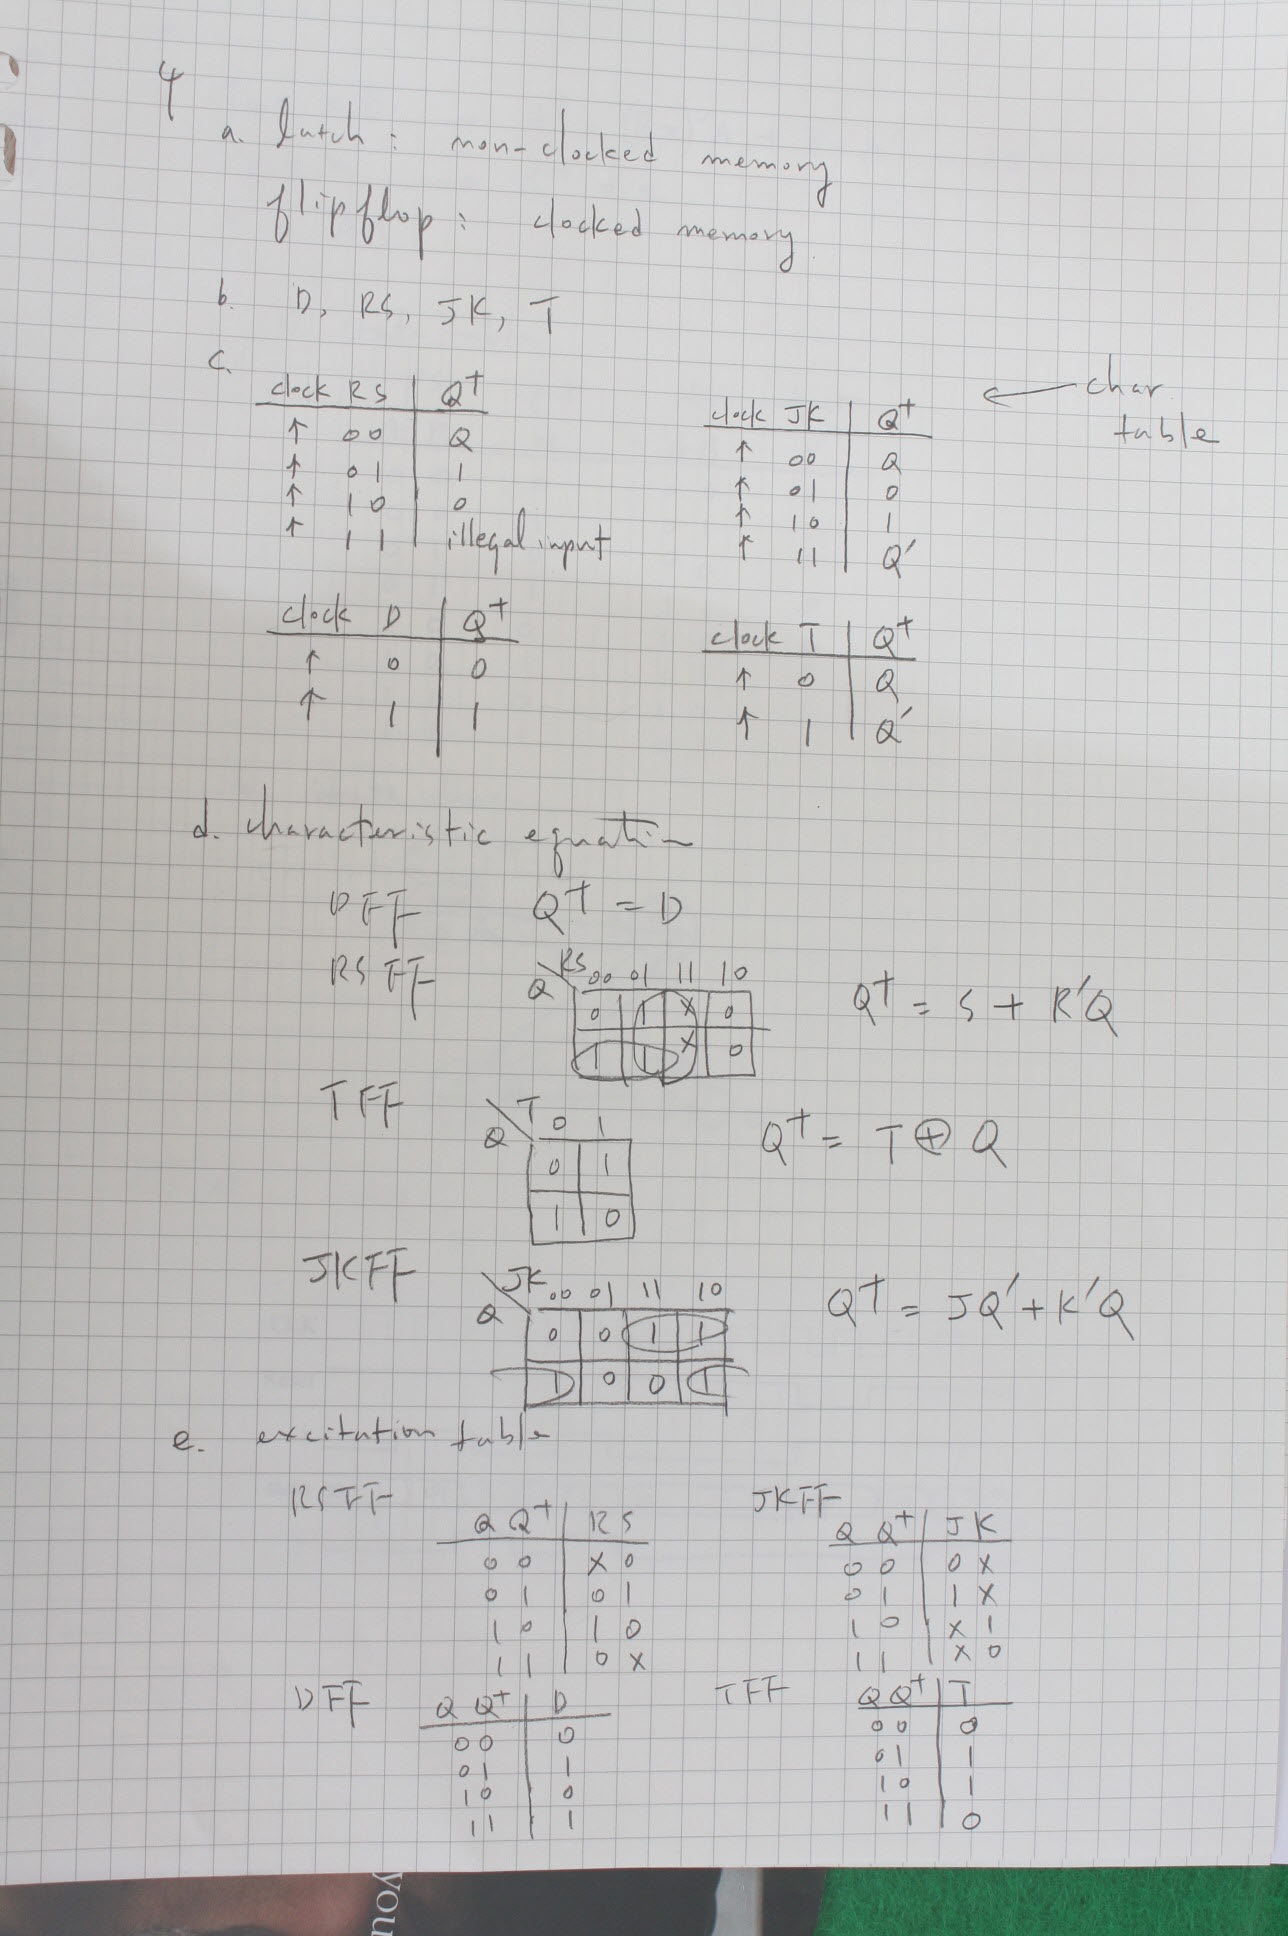 4
a. latch : non-clocked memory
flipflop : clocked memory
b. D, RS, JK, T
c.
clock RS | Q+
↑ 00 Q
↑ 01 1
↑ 10 0
↑ 11 illegal input
clock JK | Q+
↑ 00 Q
↑ 01 0
↑ 10 1
↑ 11 Q'
← char
table
clock D | Q+
↑ 0 0
↑ 1 1
clock T | Q+
↑ 0 Q
↑ 1 Q'
d. characteristic equation
DFF Q+ = D
RS FF
RS 00 01 11 10
Q
0 1 X 0
1 1 X 0
Q+ = S + R'Q
TFF
T 0 1
Q
0 1
1 0
Q+ = T ⊕ Q
JKFF
JK 00 01 11 10
Q
0 0 1 1
1 0 0 1
Q+ = JQ' + K'Q
e. excitation table
RSFF
Q Q+ | R S
0 0 X 0
0 1 0 1
1 0 1 0
1 1 0 X
JKFF
Q Q+ | J K
0 0 0 X
0 1 1 X
1 0 X 1
1 1 X 0
DFF
Q Q+ | D
0 0 0
0 1 1
1 0 0
1 1 1
TFF
Q Q+ | T
0 0 0
0 1 1
1 0 1
1 1 0
you